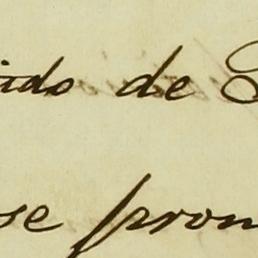 ado de
se pron